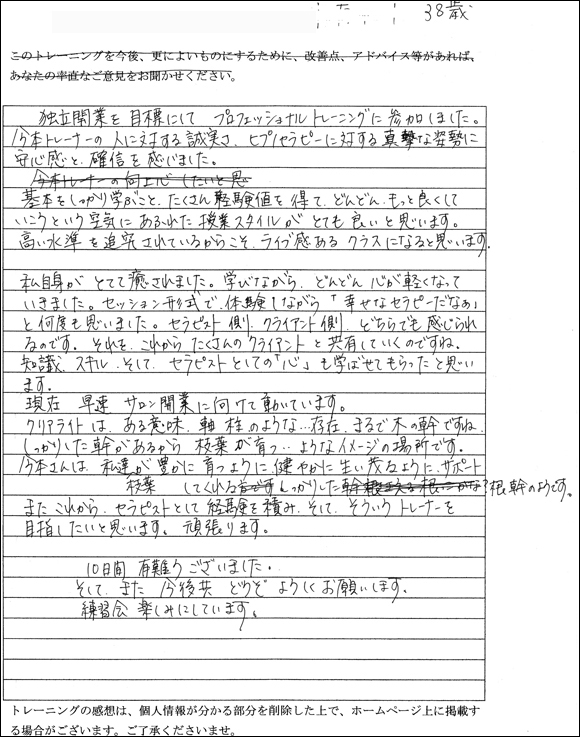 38歳
このトレーニングを今後、更によいものにするために、改善点、アドバイス等があれば、
あなたの率直なご意見をお聞かせください。
独立開業を目標にして プロフェッショナルトレーニングに参加しました。
今本トレーナーの人に対する誠実さ、ヒプノセラピーに対する真摯な姿勢に
安心感と、確信を感じました。
今本トレーナーの向上心 したいと思
基本をしっかり学ぶこと、たくさん経験値を得て、どんどん、もっと良くして
いこうという空気にあふれた授業スタイルがとても良いと思います。
高い水準を追究されているからこそ、ライブ感あるクラスになると思います。
私自身がとても癒されました。学びながら、どんどん心が軽くなって
いきました。セッション形式で、体験しながら「幸せなセラピーだなぁ」
と何度も思いました。セラピスト側、クライアント側、どちらでも感じられ
るのです。それを、これからたくさんのクライアントと共有していくのですね。
知識、スキル、そして、セラピストとしての「心」も学ばせてもらったと思い
ます。
現在 早速 サロン開業に向けて動いています。
クリアライトは、ある意味、軸、柱のような…存在、まるで木の幹ですね。
しっかりした幹があるから 枝葉が育つ…ようなイメージの場所です。
今本さんは、私達が豊かに育つように、健やかに生い茂るように、サポート
枝葉 してくれる しっかりした 根、幹のようです。
またこれから、セラピストとして経験を積み、そして、そういうトレーナーを
目指したいと思います。頑張ります。
10日間 有難うございました。
そして、また 今後共 どうぞ よろしくお願いします。
練習会 楽しみにしています。
トレーニングの感想は、個人情報が分かる部分を削除した上で、ホームページ上に掲載す
る場合がございます。ご了承くださいませ。